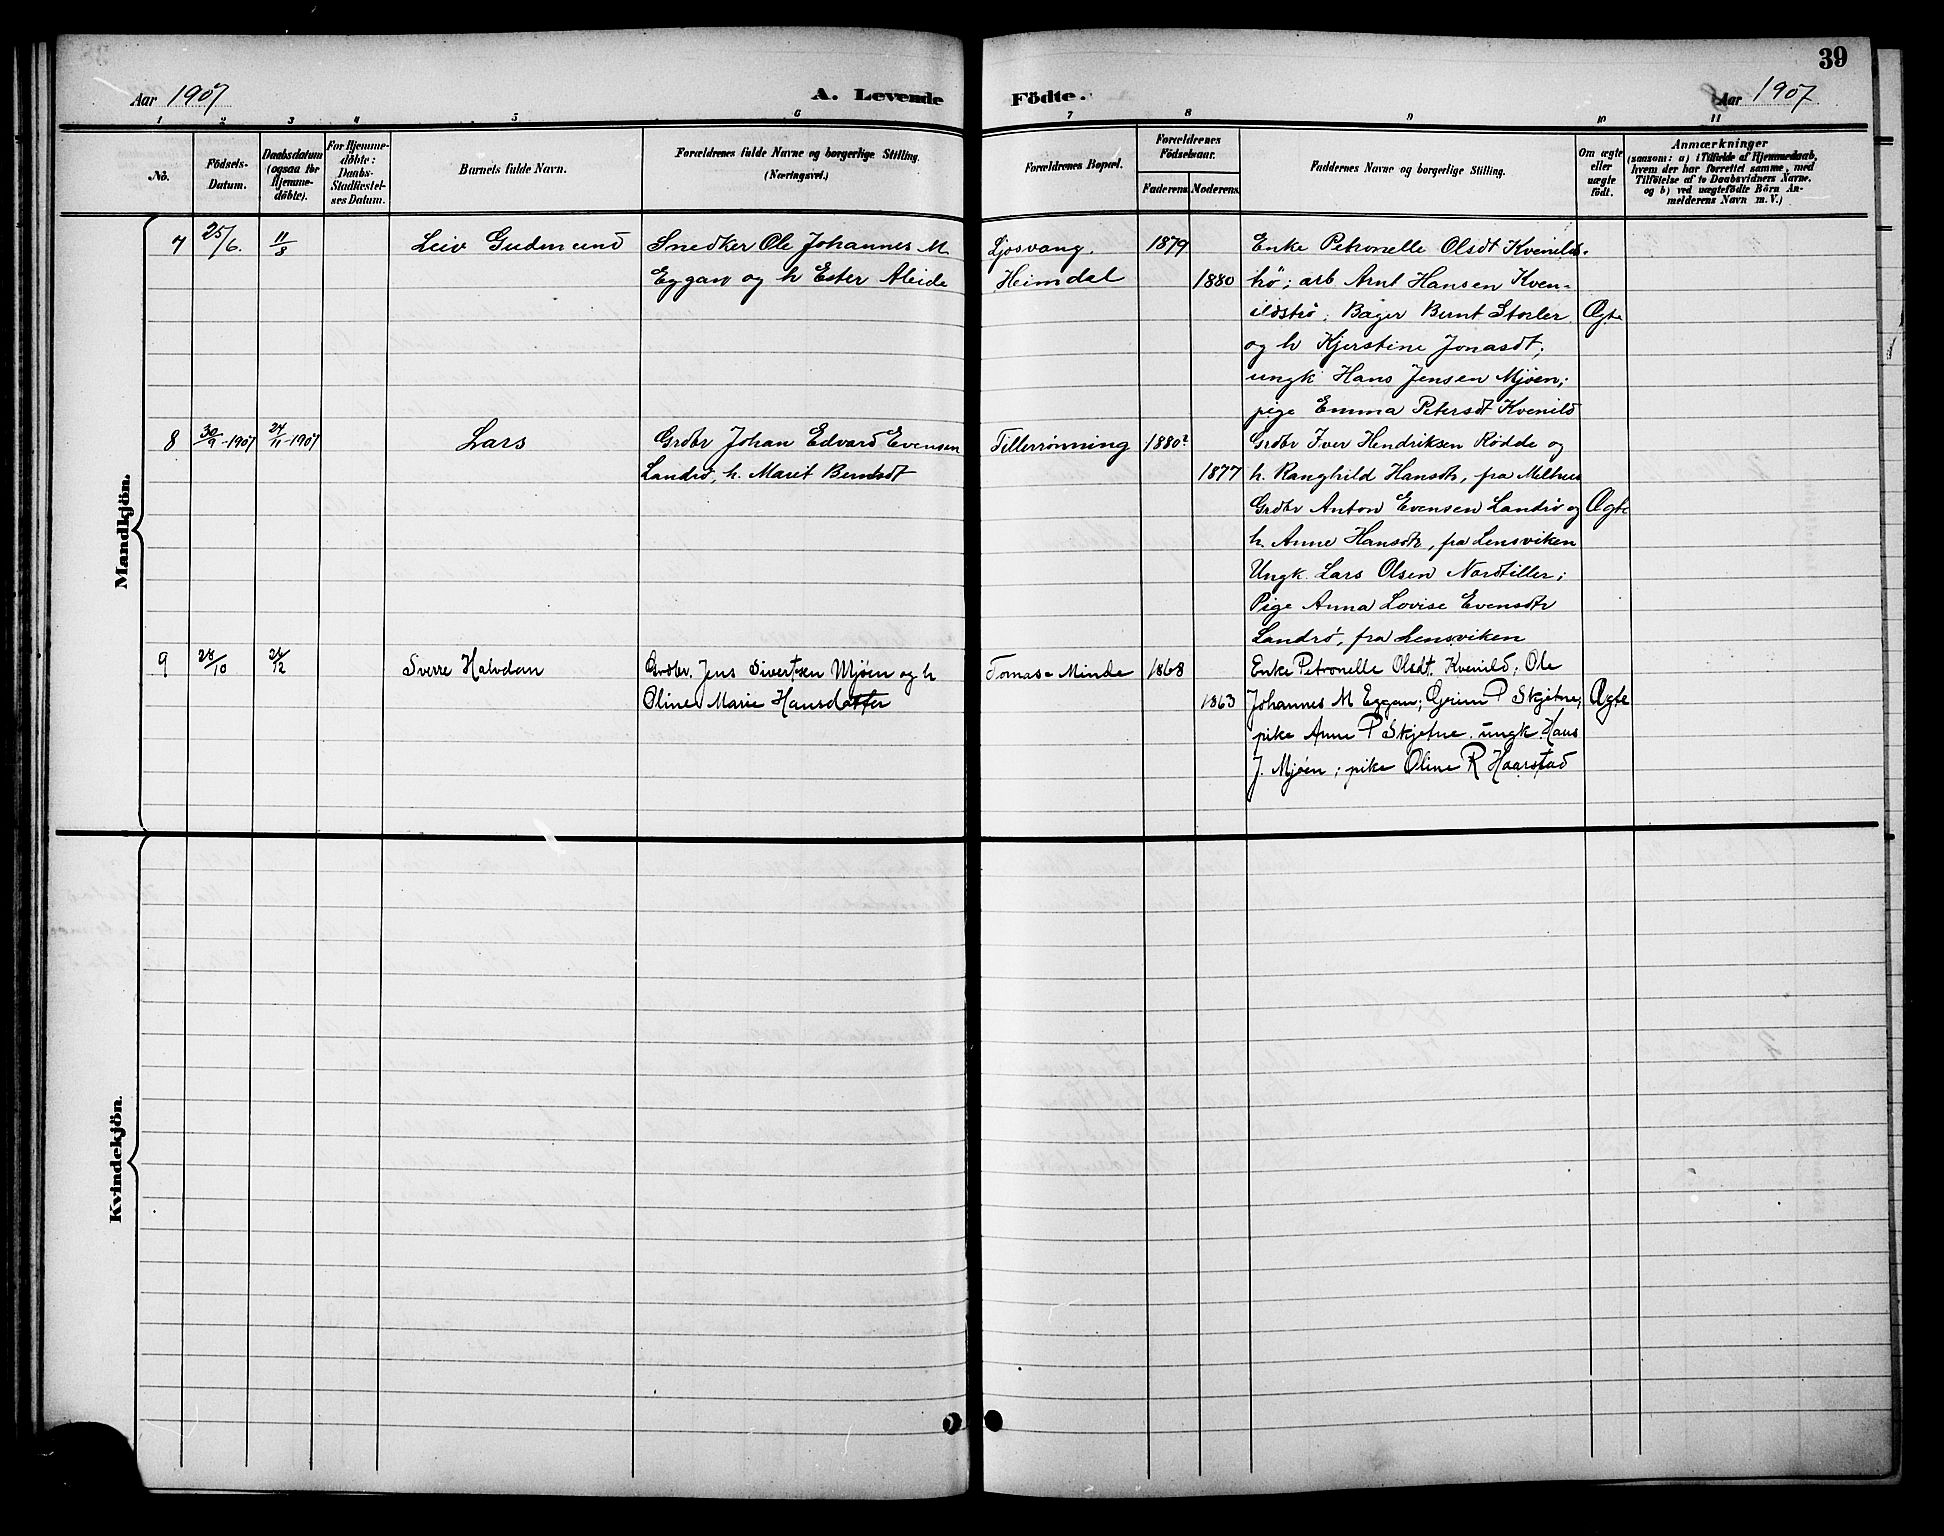 39
Aar 1907
A. Levende Födte.
Aar 1907
1 2 3 4 5 6 7 8 9 10 11
No.
Födsels-
Datum.
Daabsdatum
(ogsaa for
Hjemme-
döbte).
For Hjemme-
döbte:
Daabs-
Stadfæstel-
ses Datum.
Barnets fulde Navn.
Forældrenes fulde Navne og borgerlige Stilling.
(Næringsvei.)
Forældrenes Bopæl.
Forældrenes
Födselsaar.
Faderens.
Moderens.
Faddernes Navne og borgerlige Stilling.
Om ægte
eller
uægte
födt.
Anmærkninger
(saasom: a) i Tilfælde af Hjemmedaab,
hvem der har forrettet samme, med
Tilföielse af to Daabsvidners Navne,
og b) ved uægtefödte Börn An-
melderens Navn m. V.)
Mandkjön.
7
25/6.
11/8
Leiv Gudmund
Snedker Ole Johannes M
Eggan og h Ester Aleide
Ljosvang,
Heimdal
1879
1880
Enke Petronelle Olsdt Kvenilds-
trø; arb Arnt Hansen Kven-
ildstrø; Bager Bernt Støeler
og h Kjerstine Jonasdt;
ungk Hans Jensen Mjøen;
pige Emma Petersdt Kvenild
Ægte
8
30/9-1907
24/11-1907
Lars
Grdbr Johan Edvard Evensen
Landrø, h. Marit Berntsdt
Tillerrønning
1880?
1877
Grdbr Iver Hendriksen Rødde og
h. Ranghild Hansdtr, fra Melhus
Grdbr Anton Evensen Landrø og
h. Anne Hansdtr, fra Lensviken
Ungk. Lars Olsen Nordtiller;
Pige Anna Lovise Evensdtr
Landrø, fra Lensviken
Ægte
9
28/10
26/12
Sverre Halvdan
Grdbr. Jens Sivertsen Mjøen og h
Oline Marie Hansdatter
Tomas-Minde
1868
1863
Enke Petronelle Olsdt. Kvenild; Ole
Johannes M Eggan; Gjrim P Skjetne;
pike Anne P Skjetne. ungk Hans
J. Mjøen; pike Oline R Haarstad
Ægte
Kvindekjön.